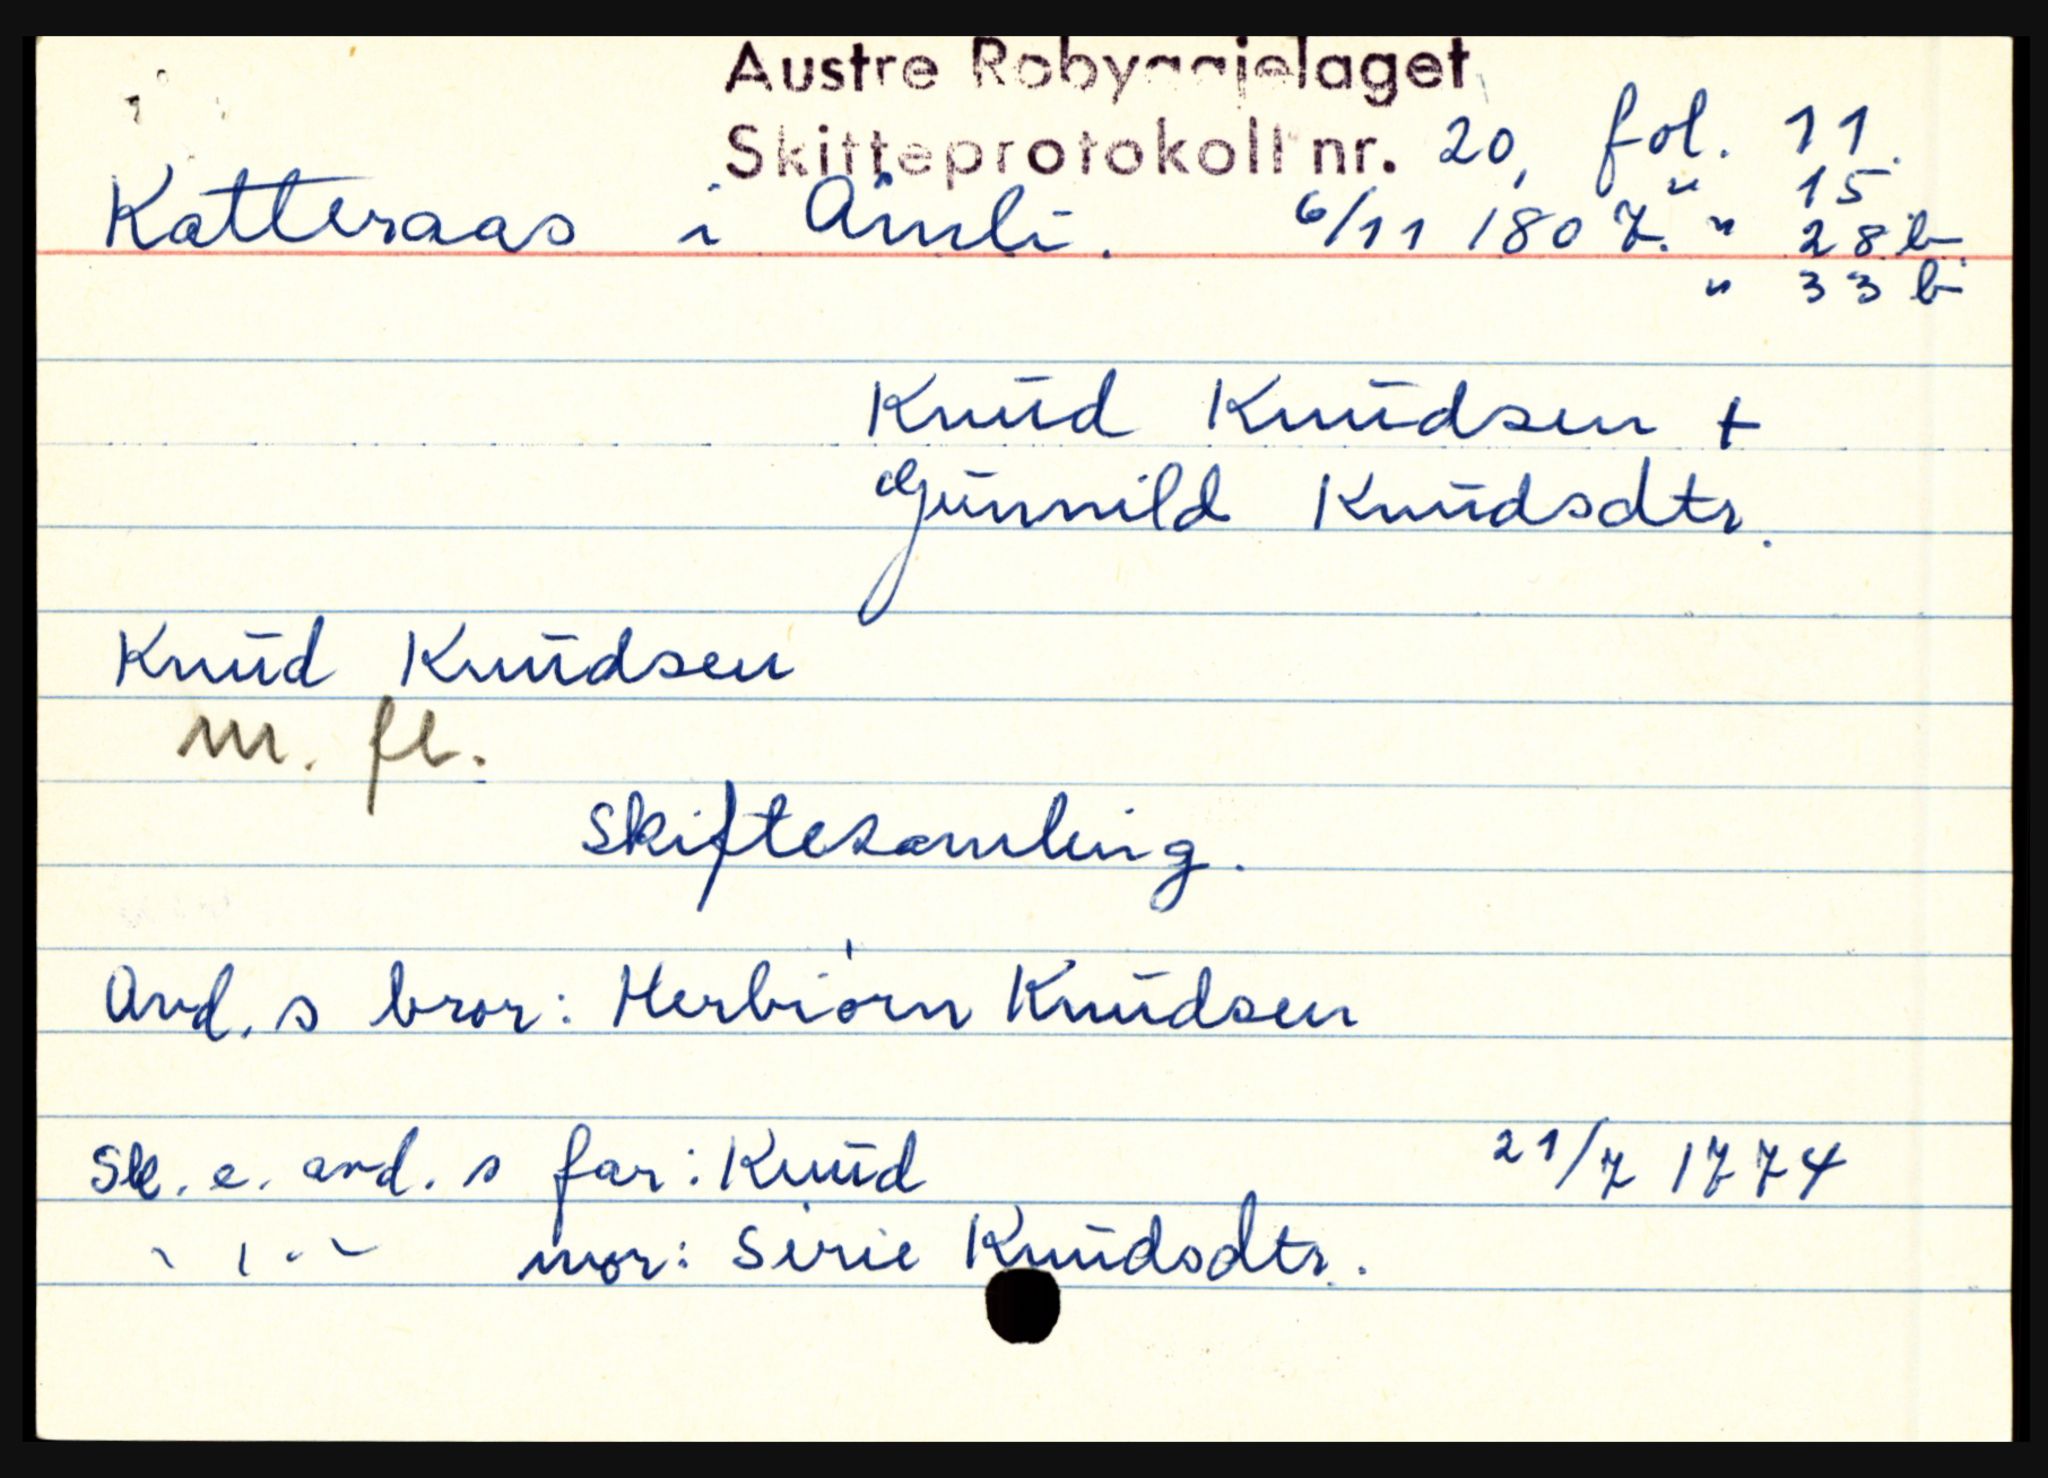 Austre Robyggjelaget
Skifteprotokoll nr. 20, fol. 11.
" 15
Katteraas i Åmli. 6/11 1807. " 28b.
" 33b
Knud Knudsen +
Gunnild Knudsdtr.
Knud Knudsen
m. fl.
Skiftesamling.
Avd. s bror: Herbiørn Knudsen
Sk. e. avd. s far: Knud 21/7 1774
" " " mor: Sirie Knudsdtr.